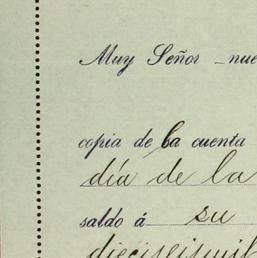 Muy Señor nue
copia de la cuenta
día de la
saldo á su
dieciseismil